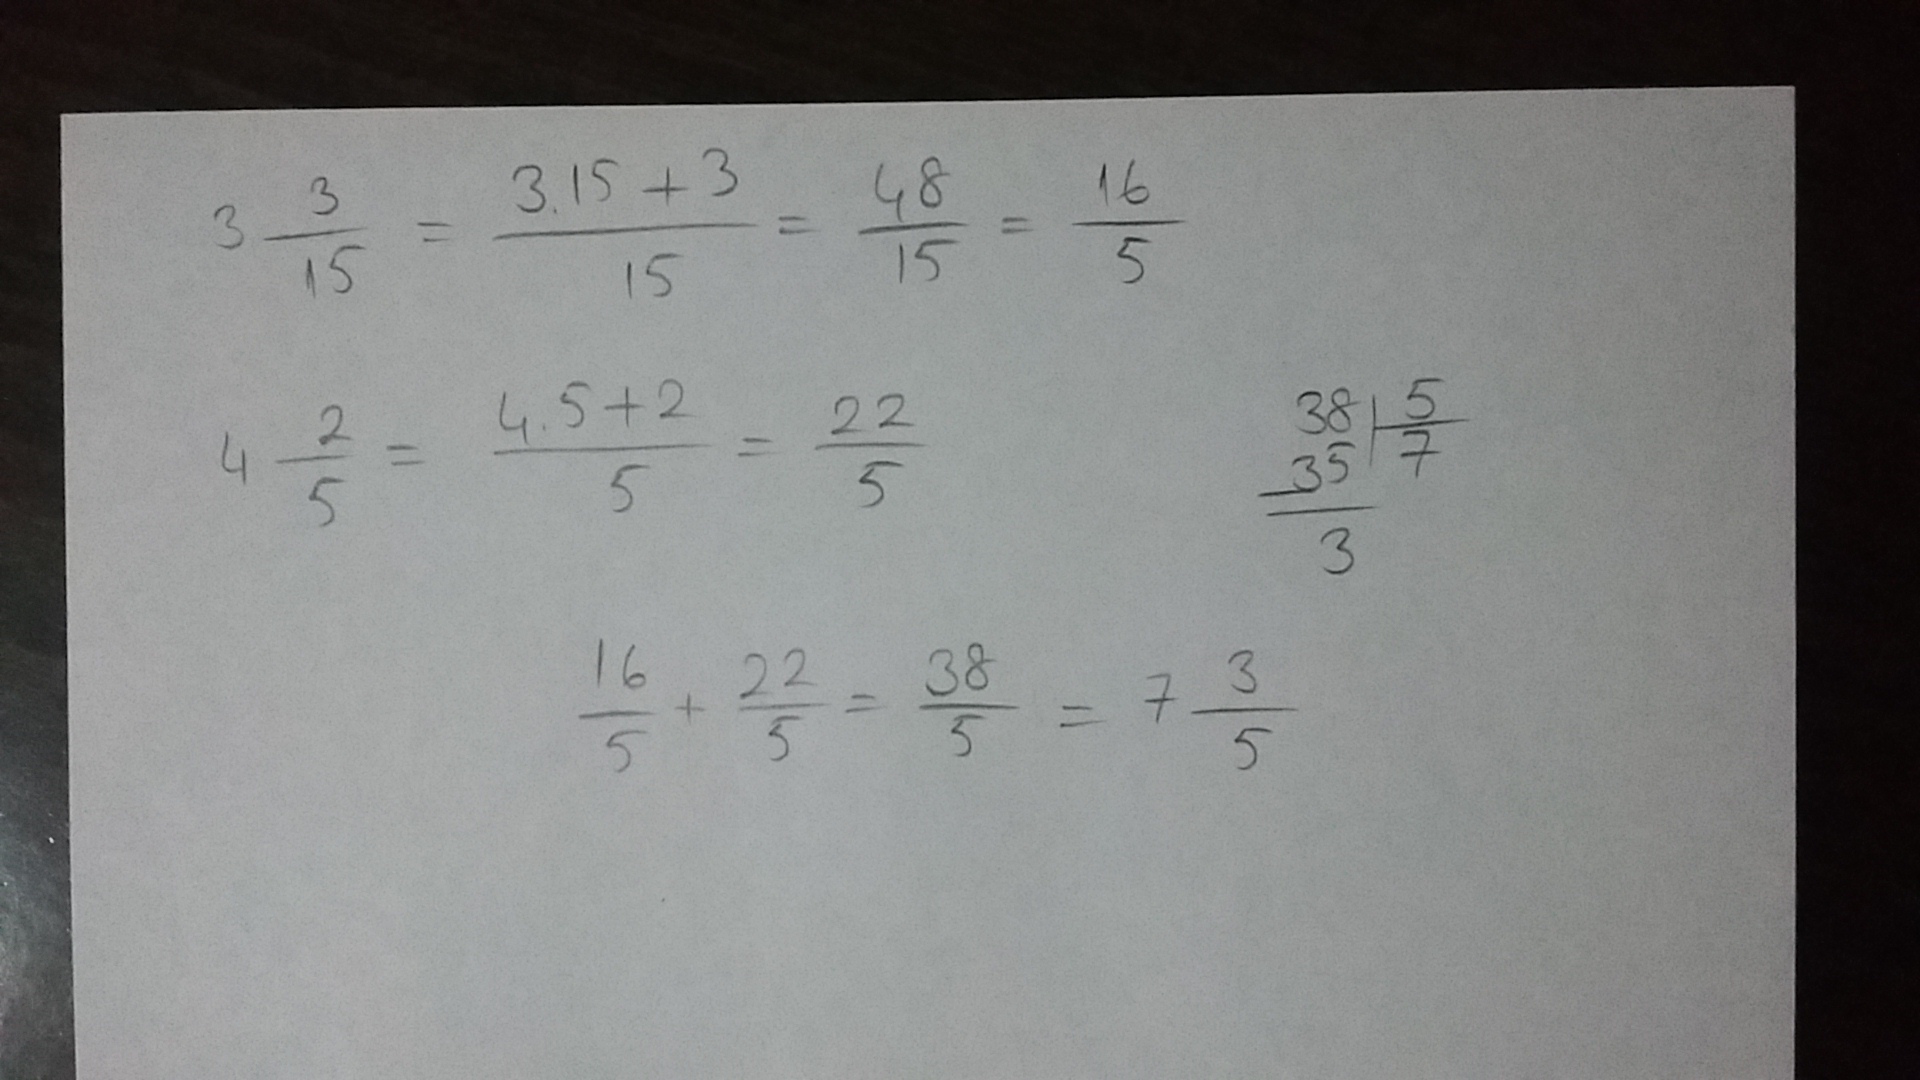 3 3/15 = 3.15+3/15 = 48/15 = 16/5
4 2/5 = 4.5+2/5 = 22/5
38 | 5
35 | 7
3
16/5 + 22/5 = 38/5 = 7 3/5